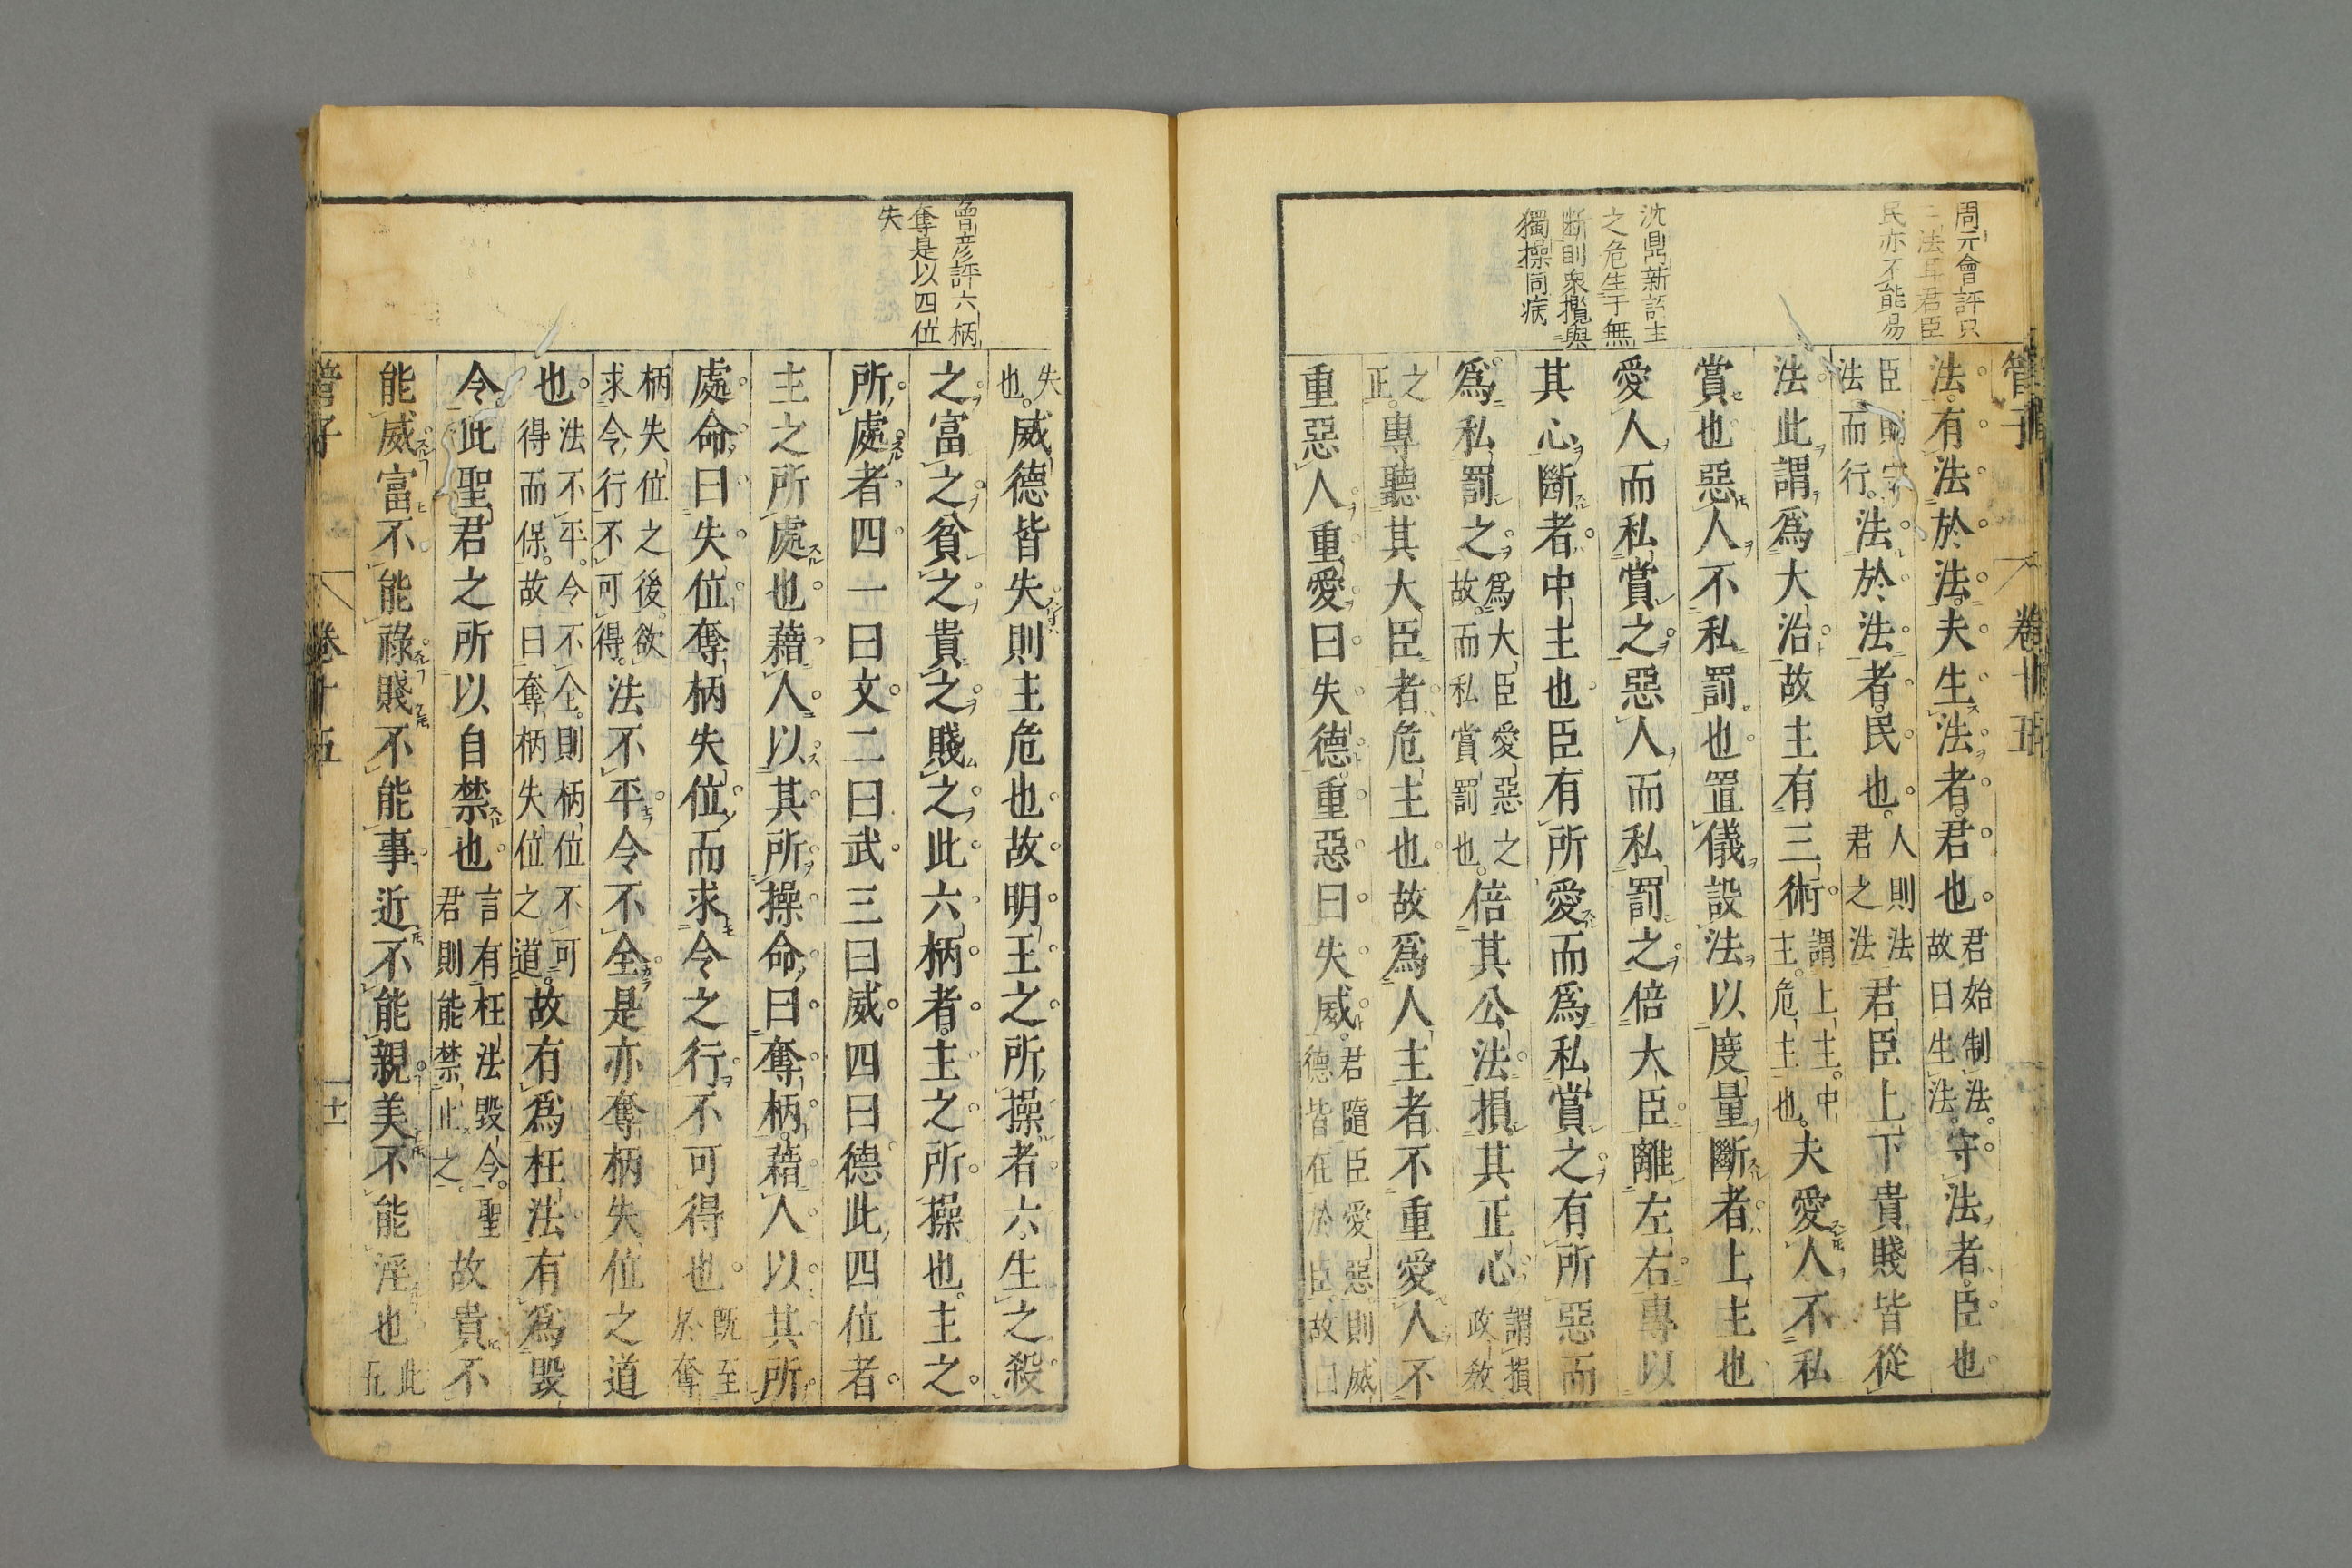 管子
卷十五
周元會評只
二法耳君臣
民亦不能易
沈鼎新評主
之危生于無
斷則衆攬與
獨操同病
法有法於法夫生法者君也君始制法故曰生法守法者臣也
臣則守法而行法於法者民也人則法君之法君臣上下貴賤皆從
法此謂爲大治故主有三術謂上主中主危主也夫愛人不私
賞也惡人不私罰也置儀設法以度量斷者上主也
愛人而私賞之惡人而私罰之倍大臣離左右專以
其心斷者中主也臣有所愛而爲私賞之有所惡而
爲私罰之爲大臣愛惡之故而私賞罰也倍其公法損其正心謂損政教
之正專聽其大臣者危主也故爲人主者不重愛人不
重惡人重愛曰失德重惡曰失威君隨臣愛惡則威德皆在於臣故曰
曾彦評六柄
奪是以四位
失
失也威德皆失則主危也故明王之所操者六生之殺
之富之貧之貴之賤之此六柄者主之所操也主之
所處者四一曰文二曰武三曰威四曰德此四位者
主之所處也藉人以其所操命曰奪柄藉人以其所
處命曰失位奪柄失位而求令之行不可得也旣至於奪
柄失位之後欲求令行不可得法不平令不全是亦奪柄失位之道
也法不平令不全則柄位不可得而保故曰奪柄失位之道故有爲枉法有爲毀
令此聖君之所以自禁也言有枉法毀令聖君則能禁止之故貴不
能威富不能祿賤不能事近不能親美不能淫也此五
管子
卷十五
十一